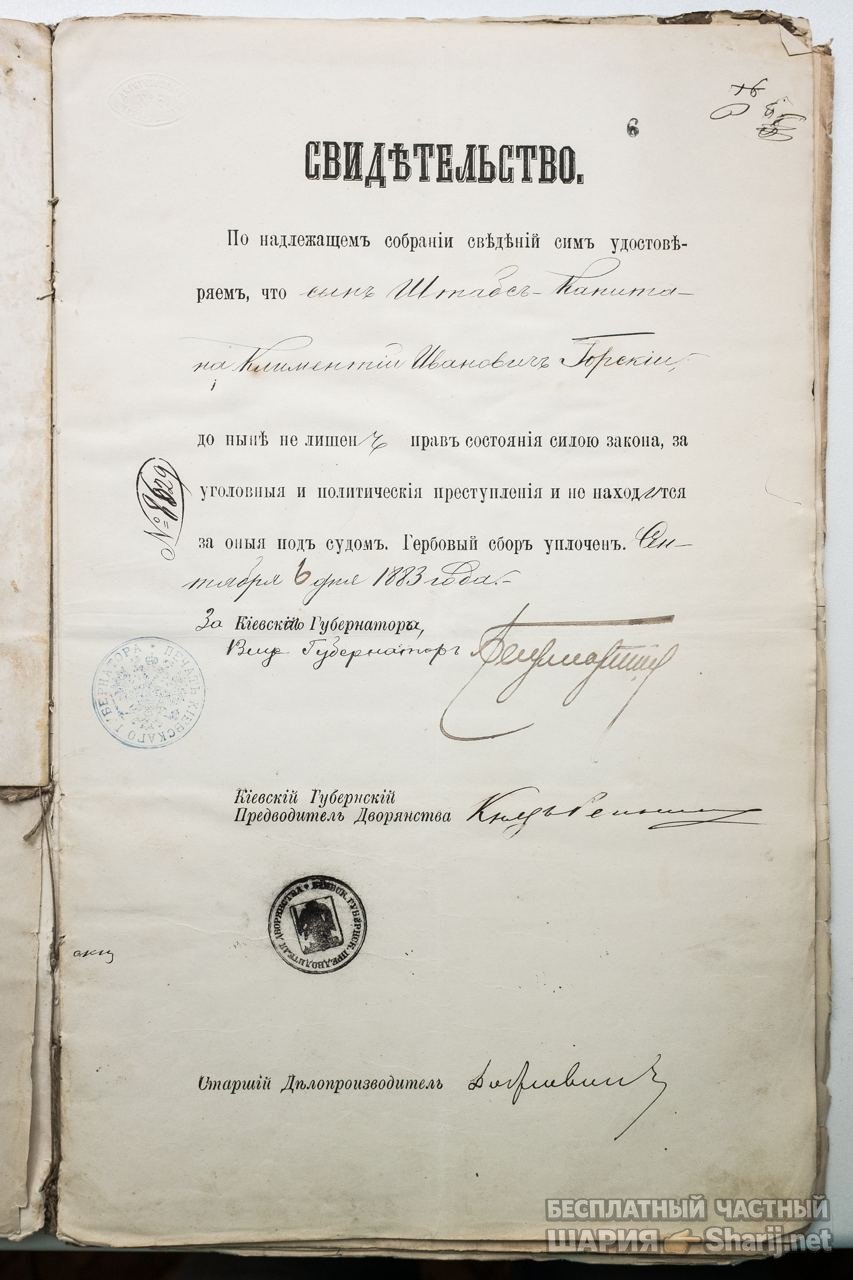 6
СВИДѢТЕЛЬСТВО.
По надлежащемъ собраніи свѣдѣній симъ удостовѣ-
ряемъ, что сынъ Штабсъ-Капита-
на Климентій Ивановичъ Горскій,
до нынѣ не лишенъ правъ состоянія силою закона, за
уголовныя и политическія преступленія и не находится
за оныя подъ судомъ. Гербовый сборъ уплоченъ. Сен-
тября 6 дня 1883 года.
За Кіевскаго Губернатора,
Вице Губернаторъ
ПЕЧАТЬ КІЕВСКАГО ГУБЕРНАТОРА
Кіевскій Губернскій
Предводитель Дворянства Князь
КІЕВСК. ГУБЕРНСК. ПРЕДВОДИТЕЛЯ ДВОРЯНСТВА
Старшій Дѣлопроизводитель
БЕСПЛАТНЫЙ ЧАСТНЫЙ
ШАРИЯ Sharij.net